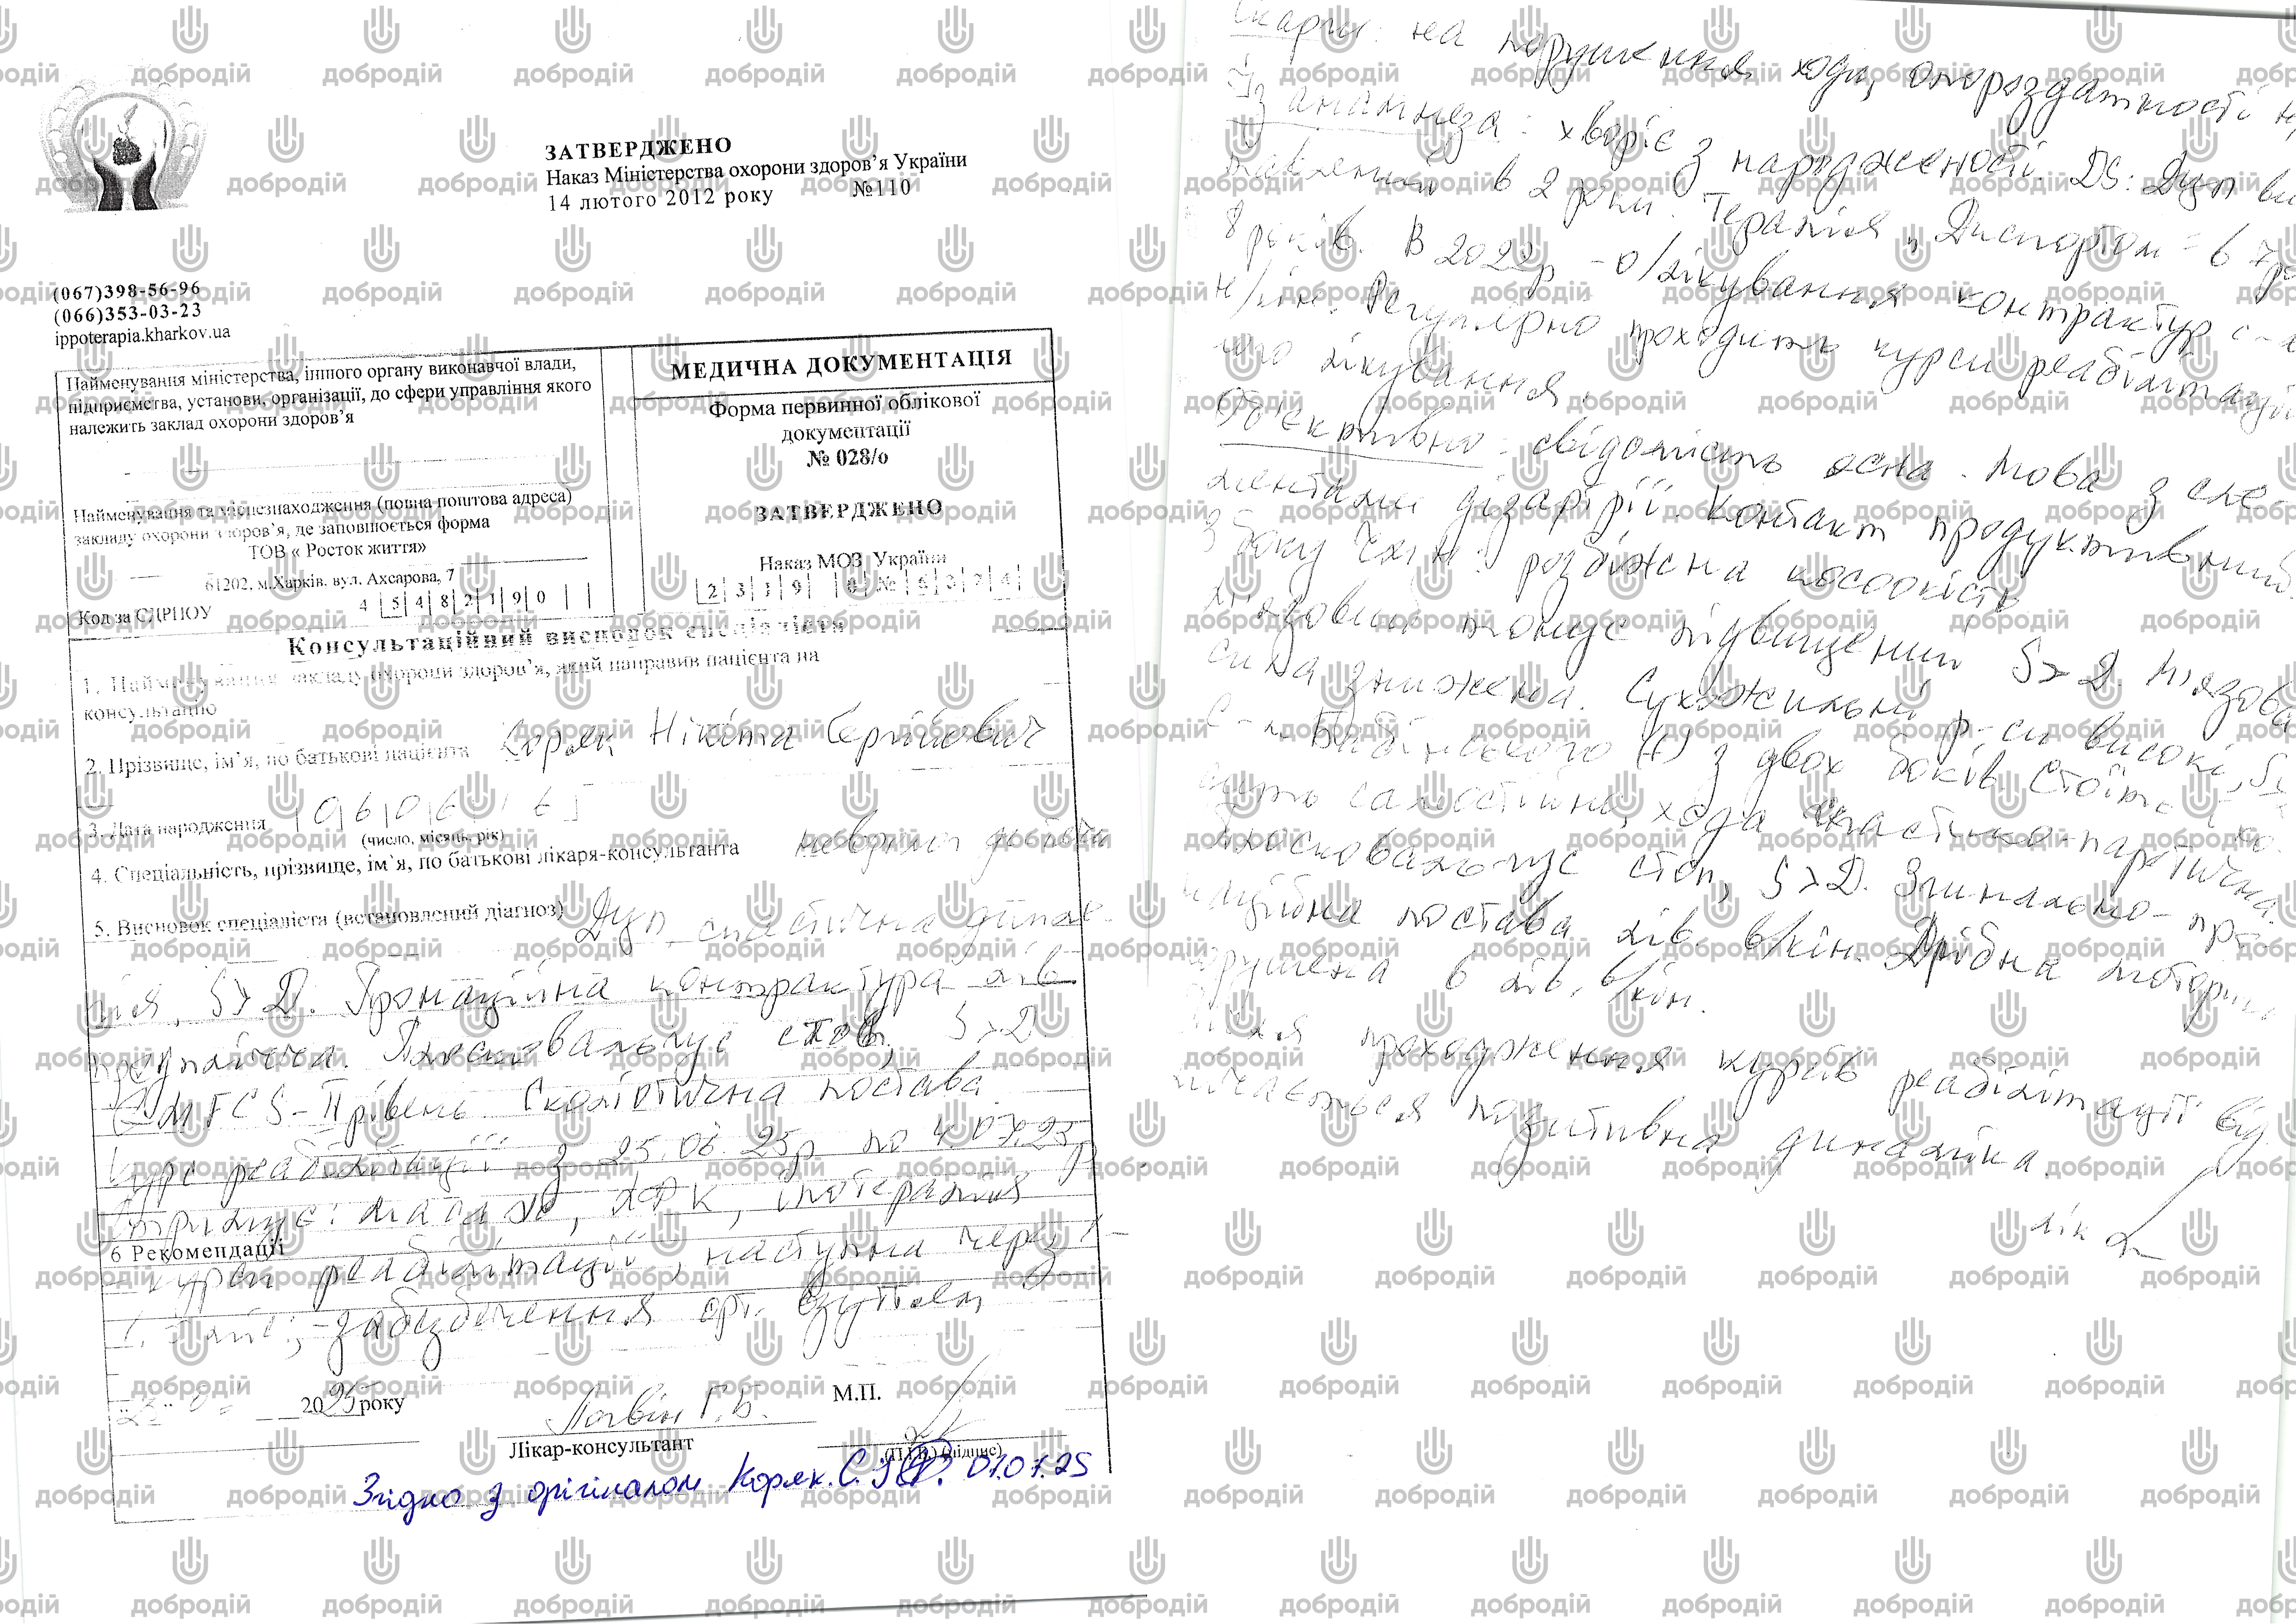 ЗАТВЕРДЖЕНО
Наказ Міністерства охорони здоров’я України
14 лютого 2012 року №110
(067)398-56-96
(066)353-03-23
ippoterapia.kharkov.ua
Найменування міністерства, іншого органу виконавчої влади,
підприємства, установи, організації, до сфери управління якого
належить заклад охорони здоров’я
Найменування та місцезнаходження (повна поштова адреса)
закладу охорони здоров’я, де заповнюється форма
ТОВ « Росток життя»
61202, м.Харків, вул. Ахсарова, 7
Код за ЄДРПОУ 4 5 4 8 2 1 9 0
МЕДИЧНА ДОКУМЕНТАЦІЯ
Форма первинної облікової
документації
№ 028/о
ЗАТВЕРДЖЕНО
Наказ МОЗ України
Консультаційний висновок спеціаліста
1. Найменування закладу охорони здоров’я, який направив пацієнта на
консультацію
2. Прізвище, ім’я, по батькові пацієнта Коряк Нікіта Сергійович
3. Дата народження
(число, місяць, рік)
4. Спеціальність, прізвище, ім’я, по батькові лікаря-консультанта невролог дитячий
5. Висновок спеціаліста (встановлений діагноз) Дцп, спастична дипле-
гія, S>D. Пронаційна контрактура лів.
передпліччя. Плосковальгус стоп, S>D.
GMFCS-II рівень. Сколіотична постава.
Курс реабілітації з 25.06.25р по 4.07.25р
Отримує: масаж, ЛФК, іпотерапія
6 Рекомендації
- курси реабілітації, наступна через
- забезпечення орт. взуттям
2025 року
Логвін Г.Б.
М.П.
Лікар-консультант
(П.І.Б.) (підпис)
Згідно з орігіналом Коряк.С. 01.07.25
Скарги: на порушення ходи, опороздатності
Із анамнеза: хворіє з народженості. DS: Дцп
в 2 роки. Терапія "Диспортом" - в
8 років. В 2022р - о/лікування контрактур
н/кін. Регулярно проходить курси реабілітацій-
ного лікування.
Об'єктивно: свідомість ясна. Мова з еле-
ментами дізартрії. Контакт продуктивний.
З боку ЧМН: розбіжна косоокість
М'язовий тонус підвищений S>D. М'язова
сила знижена. Сухожильні р-си високі,
с-м Бабінського (+) з двох боків. Стоїть і хо-
дить самостійно, хода спастико-паретична.
Плосковальгус стоп, S>D. Згинально-про-
наційна постава лів. в/кін. Дрібна моторика
порушена в лів. в/кін.
Після проходження курсів реабілітації від-
мічається позитивна динаміка.
лік
добродій